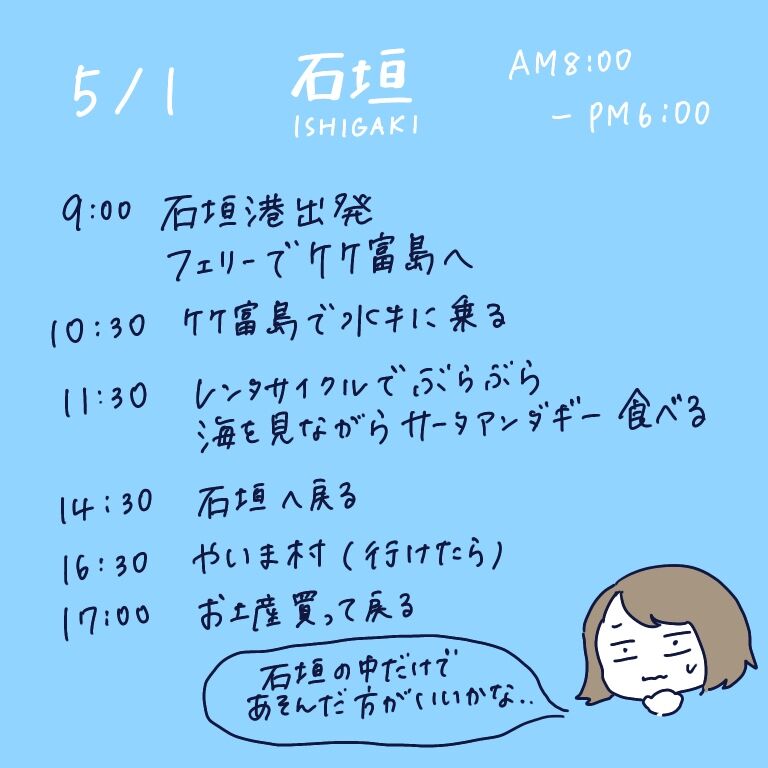 5/1
石垣
ISHIGAKI
AM8:00
－PM6:00
9:00 石垣港出発
フェリーで竹富島へ
10:30 竹富島で水牛に乗る
11:30 レンタサイクルでぶらぶら
海を見ながらサータアンダギー食べる
14:30 石垣へ戻る
16:30 やいま村(行けたら)
17:00 お土産買って戻る
石垣の中だけで
あそんだ方がいいかな..